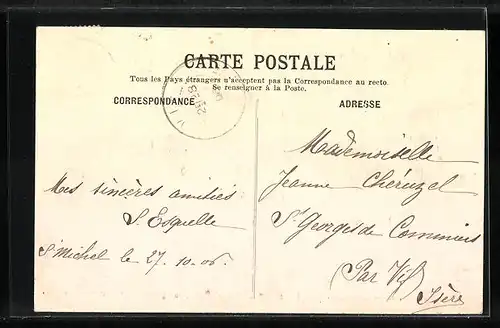 CARTE POSTALE
Tous les Pays étrangers n'acceptent pas la Correspondance au recto.
Se renseigner à la Poste.
CORRESPONDANCE
Mes sincères amitiés
S. Esquelle
St Michel le 27. 10-06.
ADRESSE
Mademoiselle
Jeanne Chéruzel
St Georges de Commiers
(Par Vif)
Isère